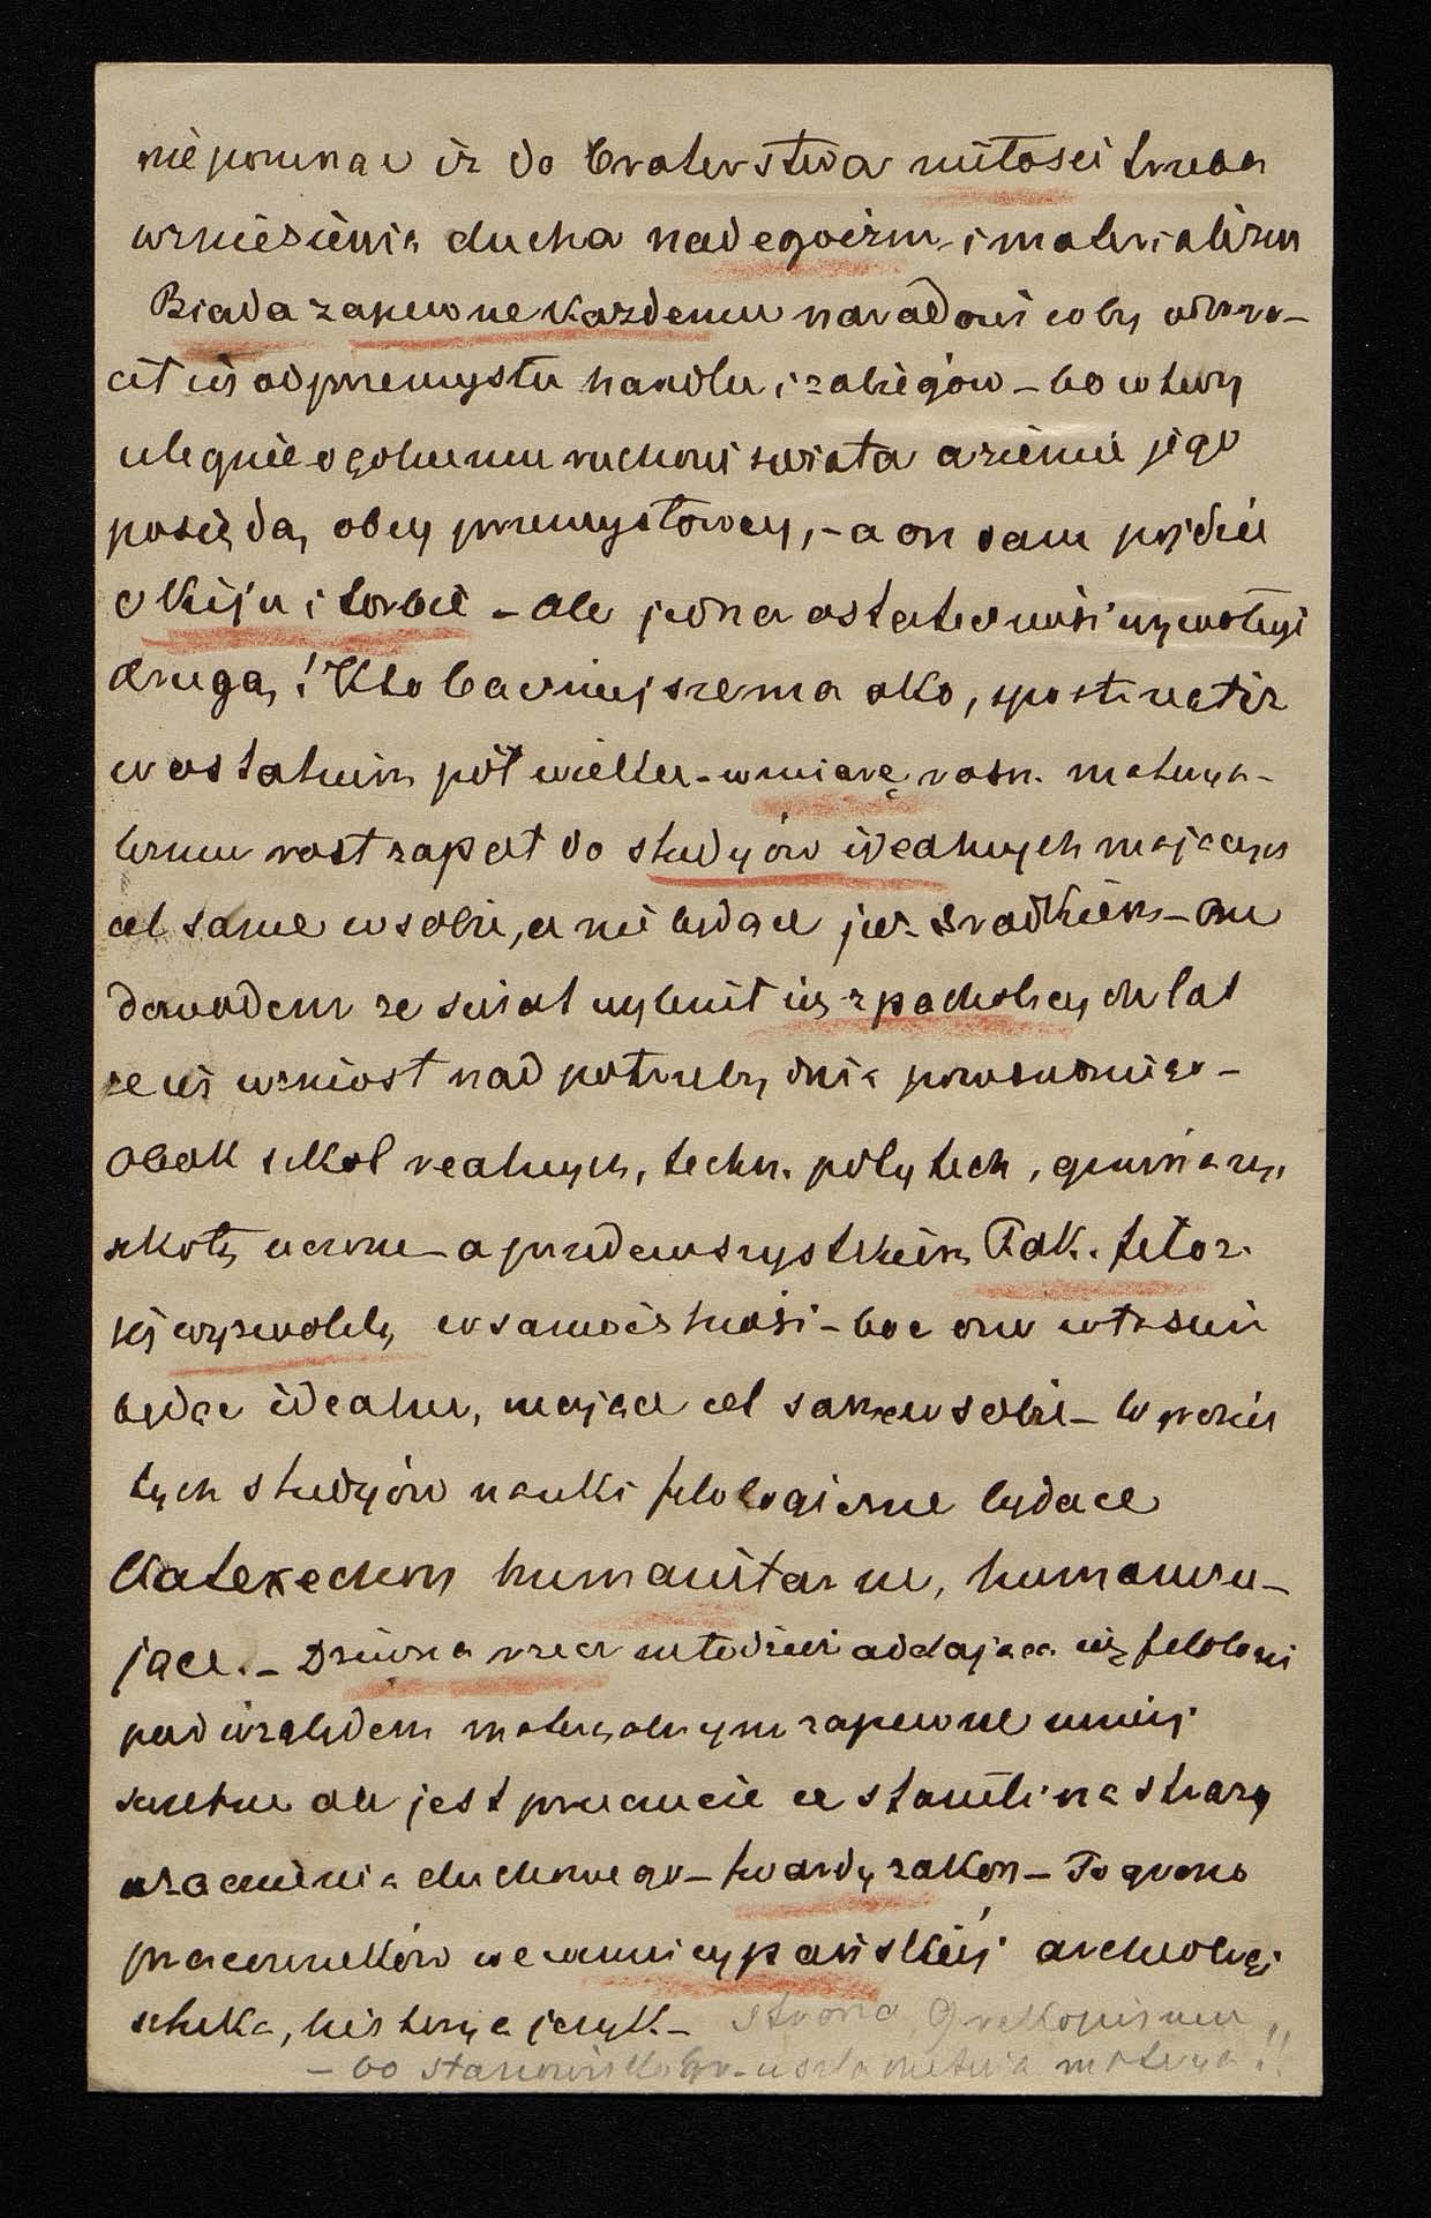 niepomnąc iż do braterstwa miłości trzeba
wzniesienia ducha nad egoizm i materializm
Biada zapewne każdemu narodowi coby odwró-
cił się od przemysłu handlu i zabiegów – bo wtedy
ulegnie ogólnemu ruchowi świata a ziemie jego
posiędą obcy przemysłowcy, – a on sam pójdzie
o kiju i torbie – ale jedna ostateczność wywołuje
drugą! Kto baczniejsze ma oko, spostrzegł iż
w ostatnim pół wieku – w miarę rosn. materya-
lizmu rosł zapał do studyów idealnych mających
cel same w sobie, a nie będące już środkiem – One
dowodem ze świat wybił się z pacholęcych lat
ze się wzniosł nad potrzeby dnia powszedniego –
Obok szkół realnych, techn. polytech, gimnazya
szkoły uczone – a przedewszystkiem Fak. filoz.
się wyzwoliły w samoistność – boć one właśnie
będąc idealne, mające cel same w sobie – W gronie
tych studyów nauki filologiczne będące
Katexochen humanitarne, humanizu-
jące. – Dziwna rzecz młodzież oddająca się filologii
pod względem materyalnym zapewne mniej
świetne ale jest przeczucie że stanęli na straży
uzacnienia duchowego – twardy zakon – To grono
pracowników w winnicy pańskiej archeologi
sztuka, historya język. – strona 9 rękopismu
– bo stanowisko materya!!